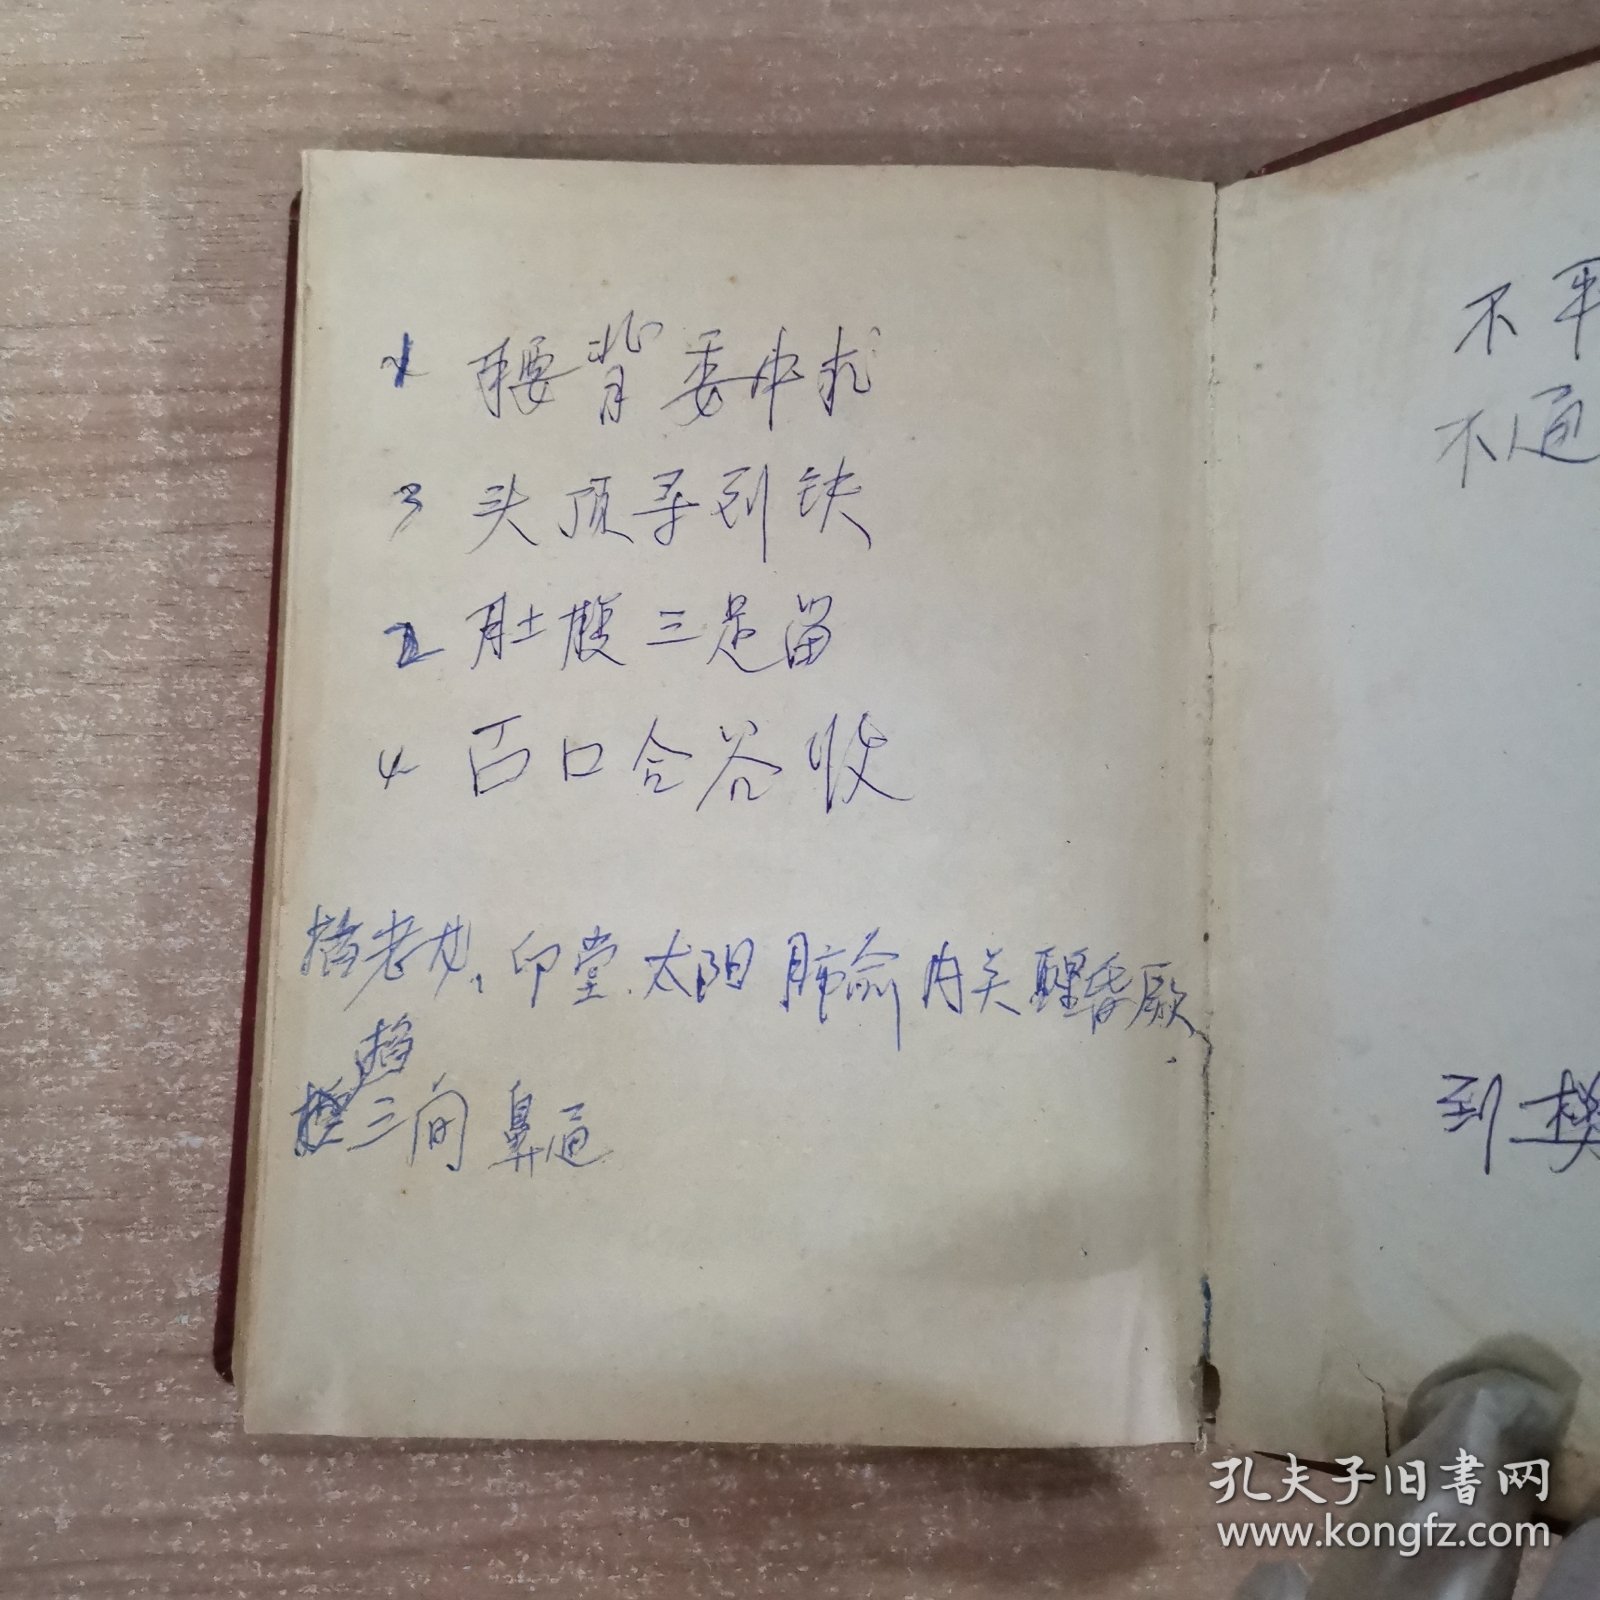 1 腰背委中求
3 头顶寻列缺
2 肚腹三足留
4 面口合谷收
掐老龙、印堂.太阳 肺俞 内关 醒昏厥.
掐
三间 鼻通
不平
不通
到楼
孔夫子旧书网
www.kongfz.com